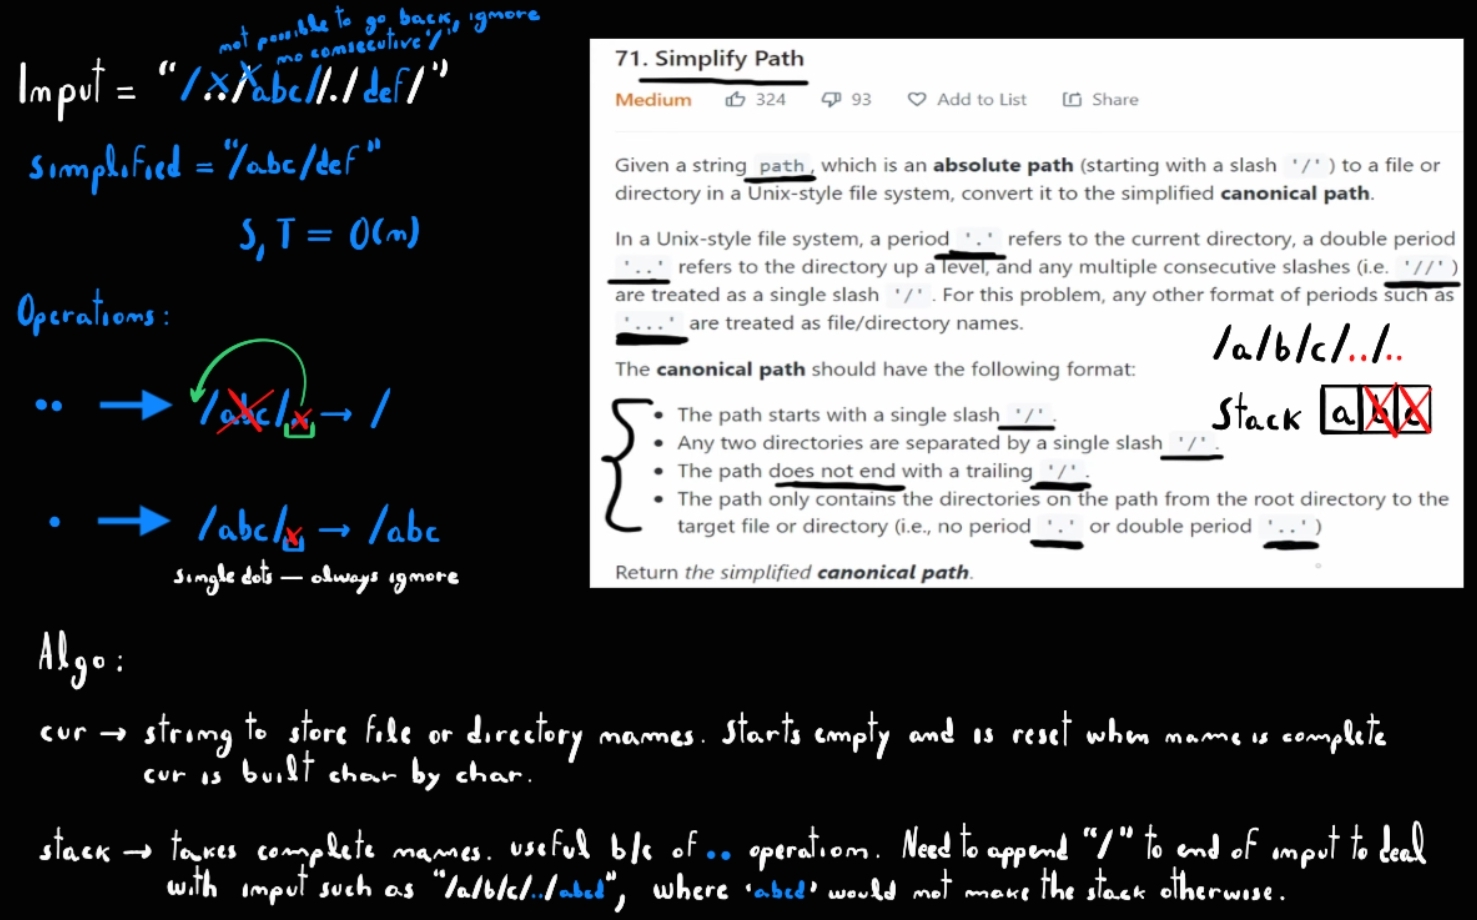 not possible to go back, ignore
no consecutive '/'
Input = "/../abc//./def/"
simplified = "/abc/def"
S, T = O(n)
Operations:
.. → /abc/.. → /
. → /abc/. → /abc
single dots — always ignore
71. Simplify Path
Medium 324 93 Add to List Share
Given a string path, which is an absolute path (starting with a slash '/') to a file or
directory in a Unix-style file system, convert it to the simplified canonical path.
In a Unix-style file system, a period '.' refers to the current directory, a double period
'..' refers to the directory up a level, and any multiple consecutive slashes (i.e. '//')
are treated as a single slash '/'. For this problem, any other format of periods such as
'...' are treated as file/directory names.
/a/b/c/../..
The canonical path should have the following format:
Stack a b c
• The path starts with a single slash '/'.
• Any two directories are separated by a single slash '/'.
• The path does not end with a trailing '/'.
• The path only contains the directories on the path from the root directory to the
target file or directory (i.e., no period '.' or double period '..')
Return the simplified canonical path.
Algo:
cur → string to store file or directory names. Starts empty and is reset when name is complete
cur is built char by char.
stack → takes complete names. useful b/c of .. operation. Need to append "/" to end of input to deal
with input such as "/a/b/c/../abcd", where 'abcd' would not make the stack otherwise.